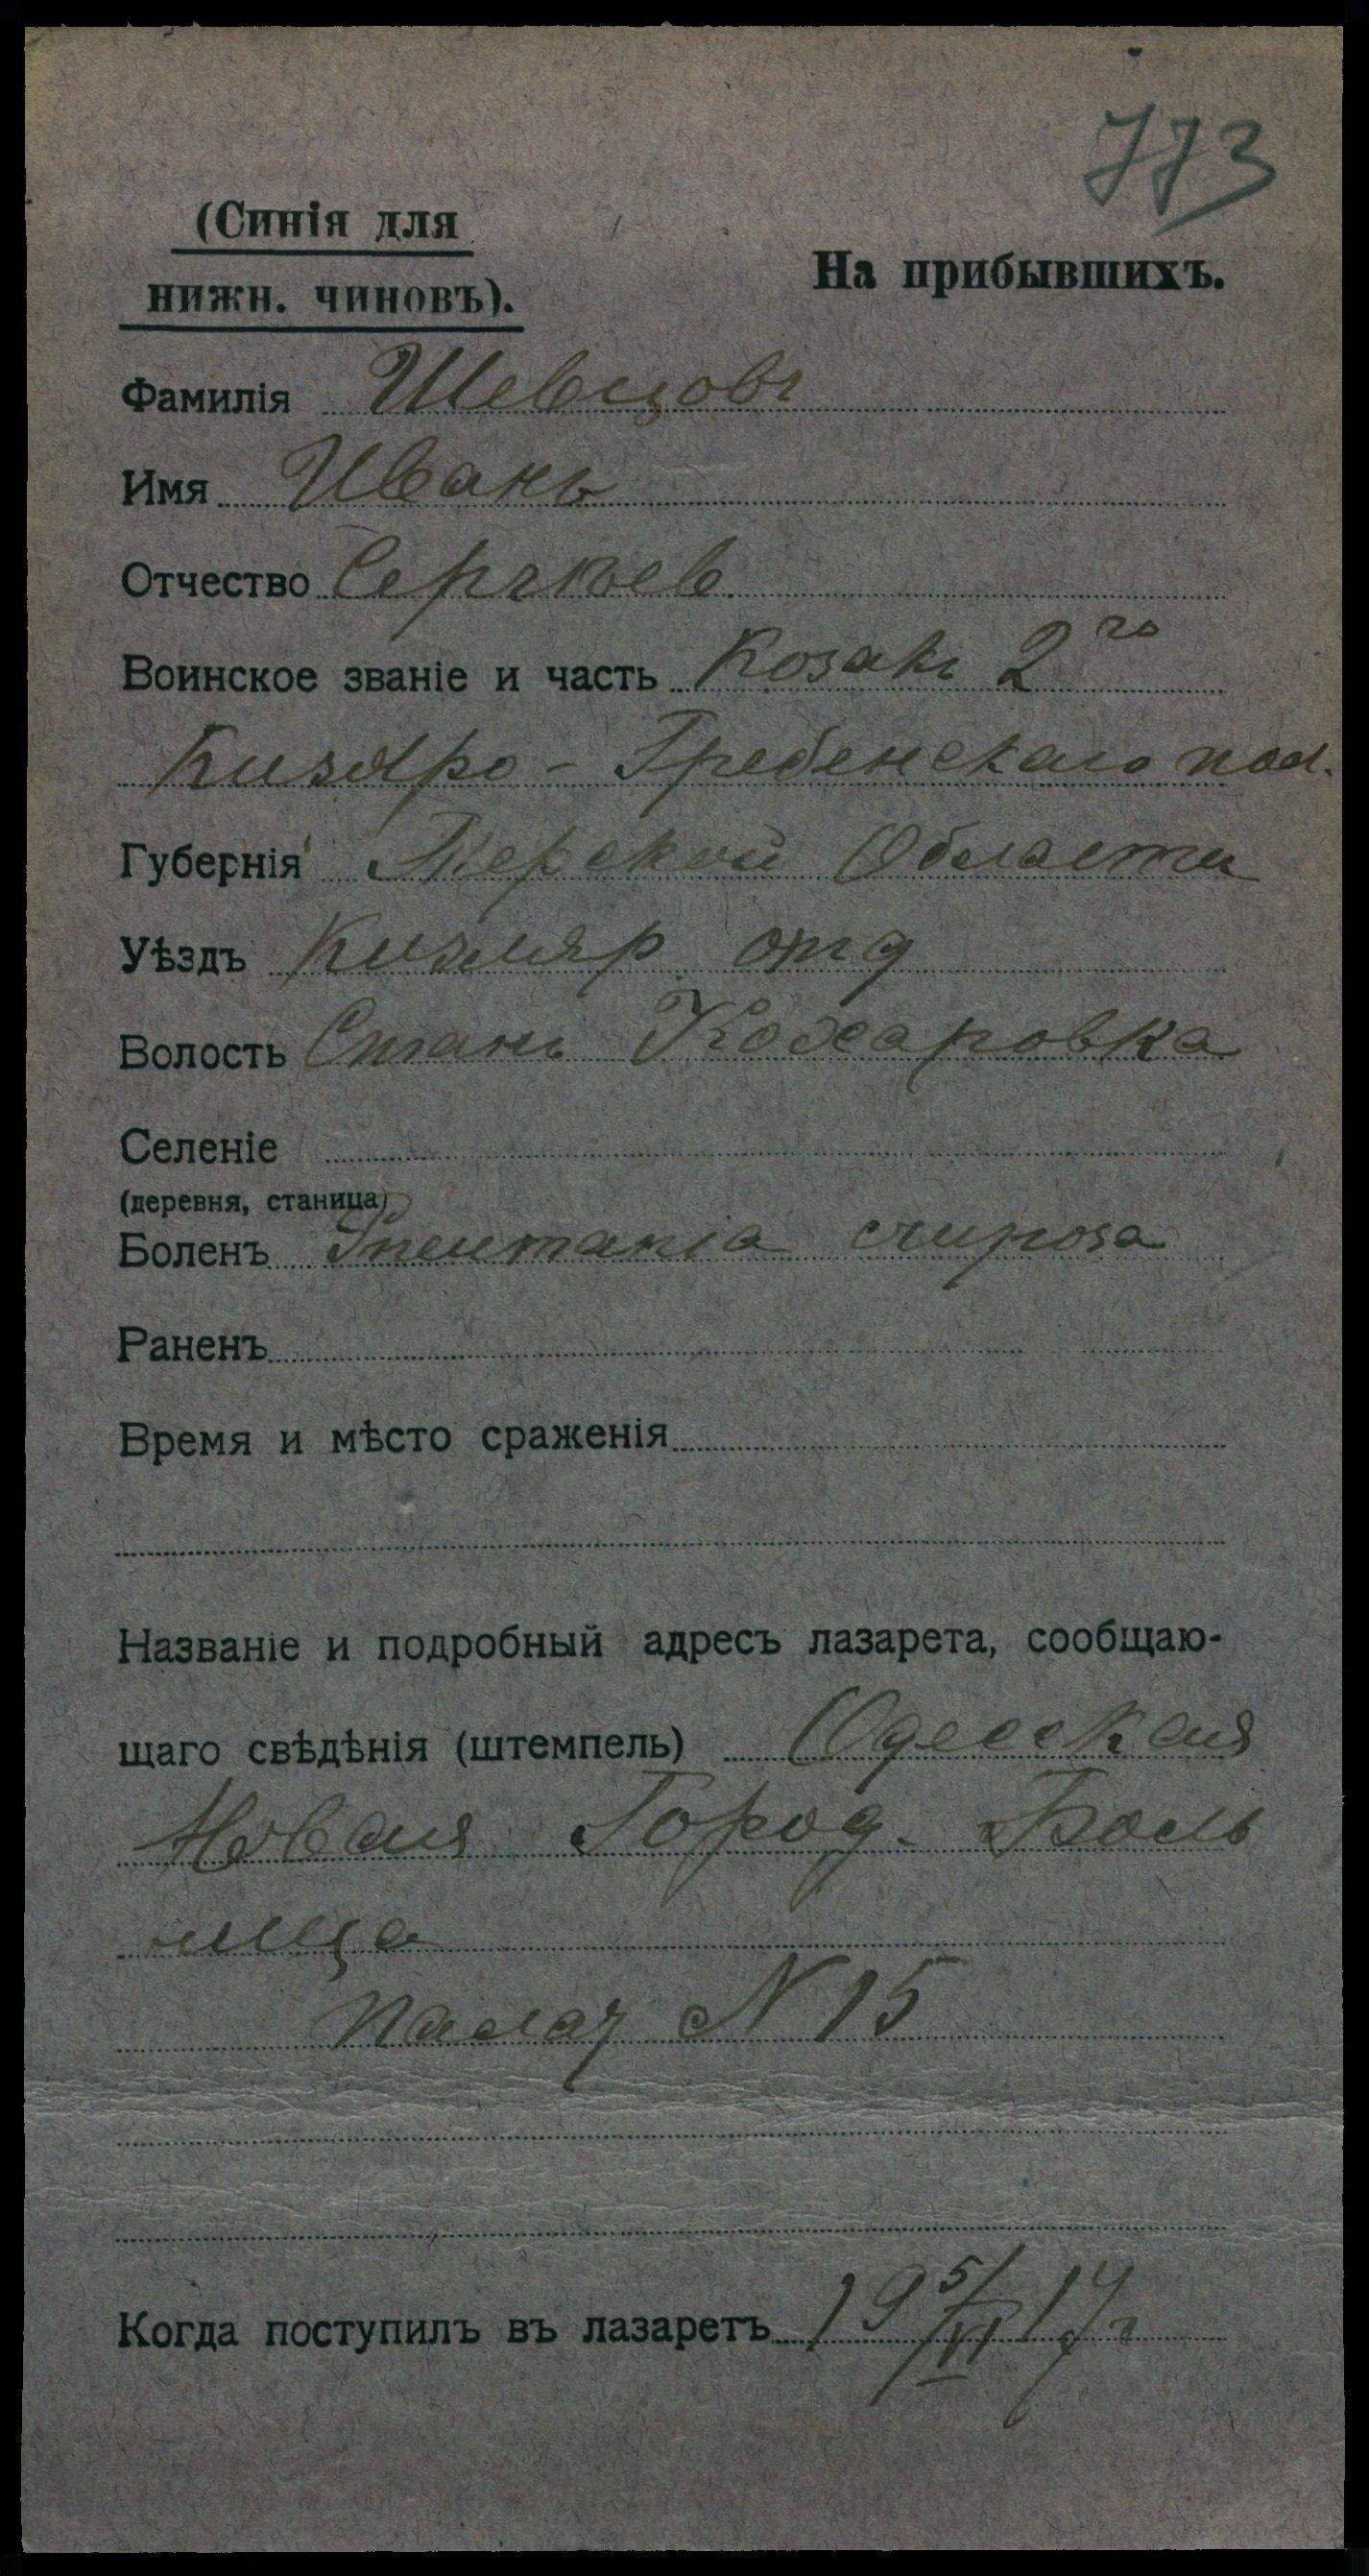 773
(Синія для
нижн. чиновъ).
На прибывшихъ.
Фамилія Шевцовъ
Имя Иванъ
Отчество Сергѣев.
Воинское званіе и часть Козакъ 2го
Кизляро - Гребенскаго пол.
Губернія Терской Области
Уѣздъ Кизляр. отд
Волость Стань
Селеніе
(деревня, станица)
Боленъ
Раненъ
Время и мѣсто сраженія
Названіе и подробный адресъ лазарета, сообщаю-
щаго свѣдѣнія (штемпель) Одесская
Новая Город. Боль
ница
палат N 15
Когда поступилъ въ лазаретъ 19 5/VI 17г